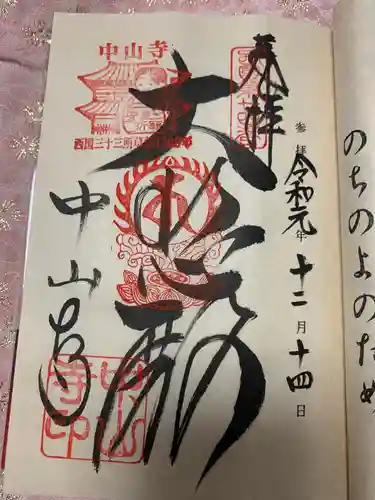 奉拝
参拝 令和元年十二月十四日
大悲殿
中山寺
中山寺
西国三十三所
中山寺印
のちのよのため